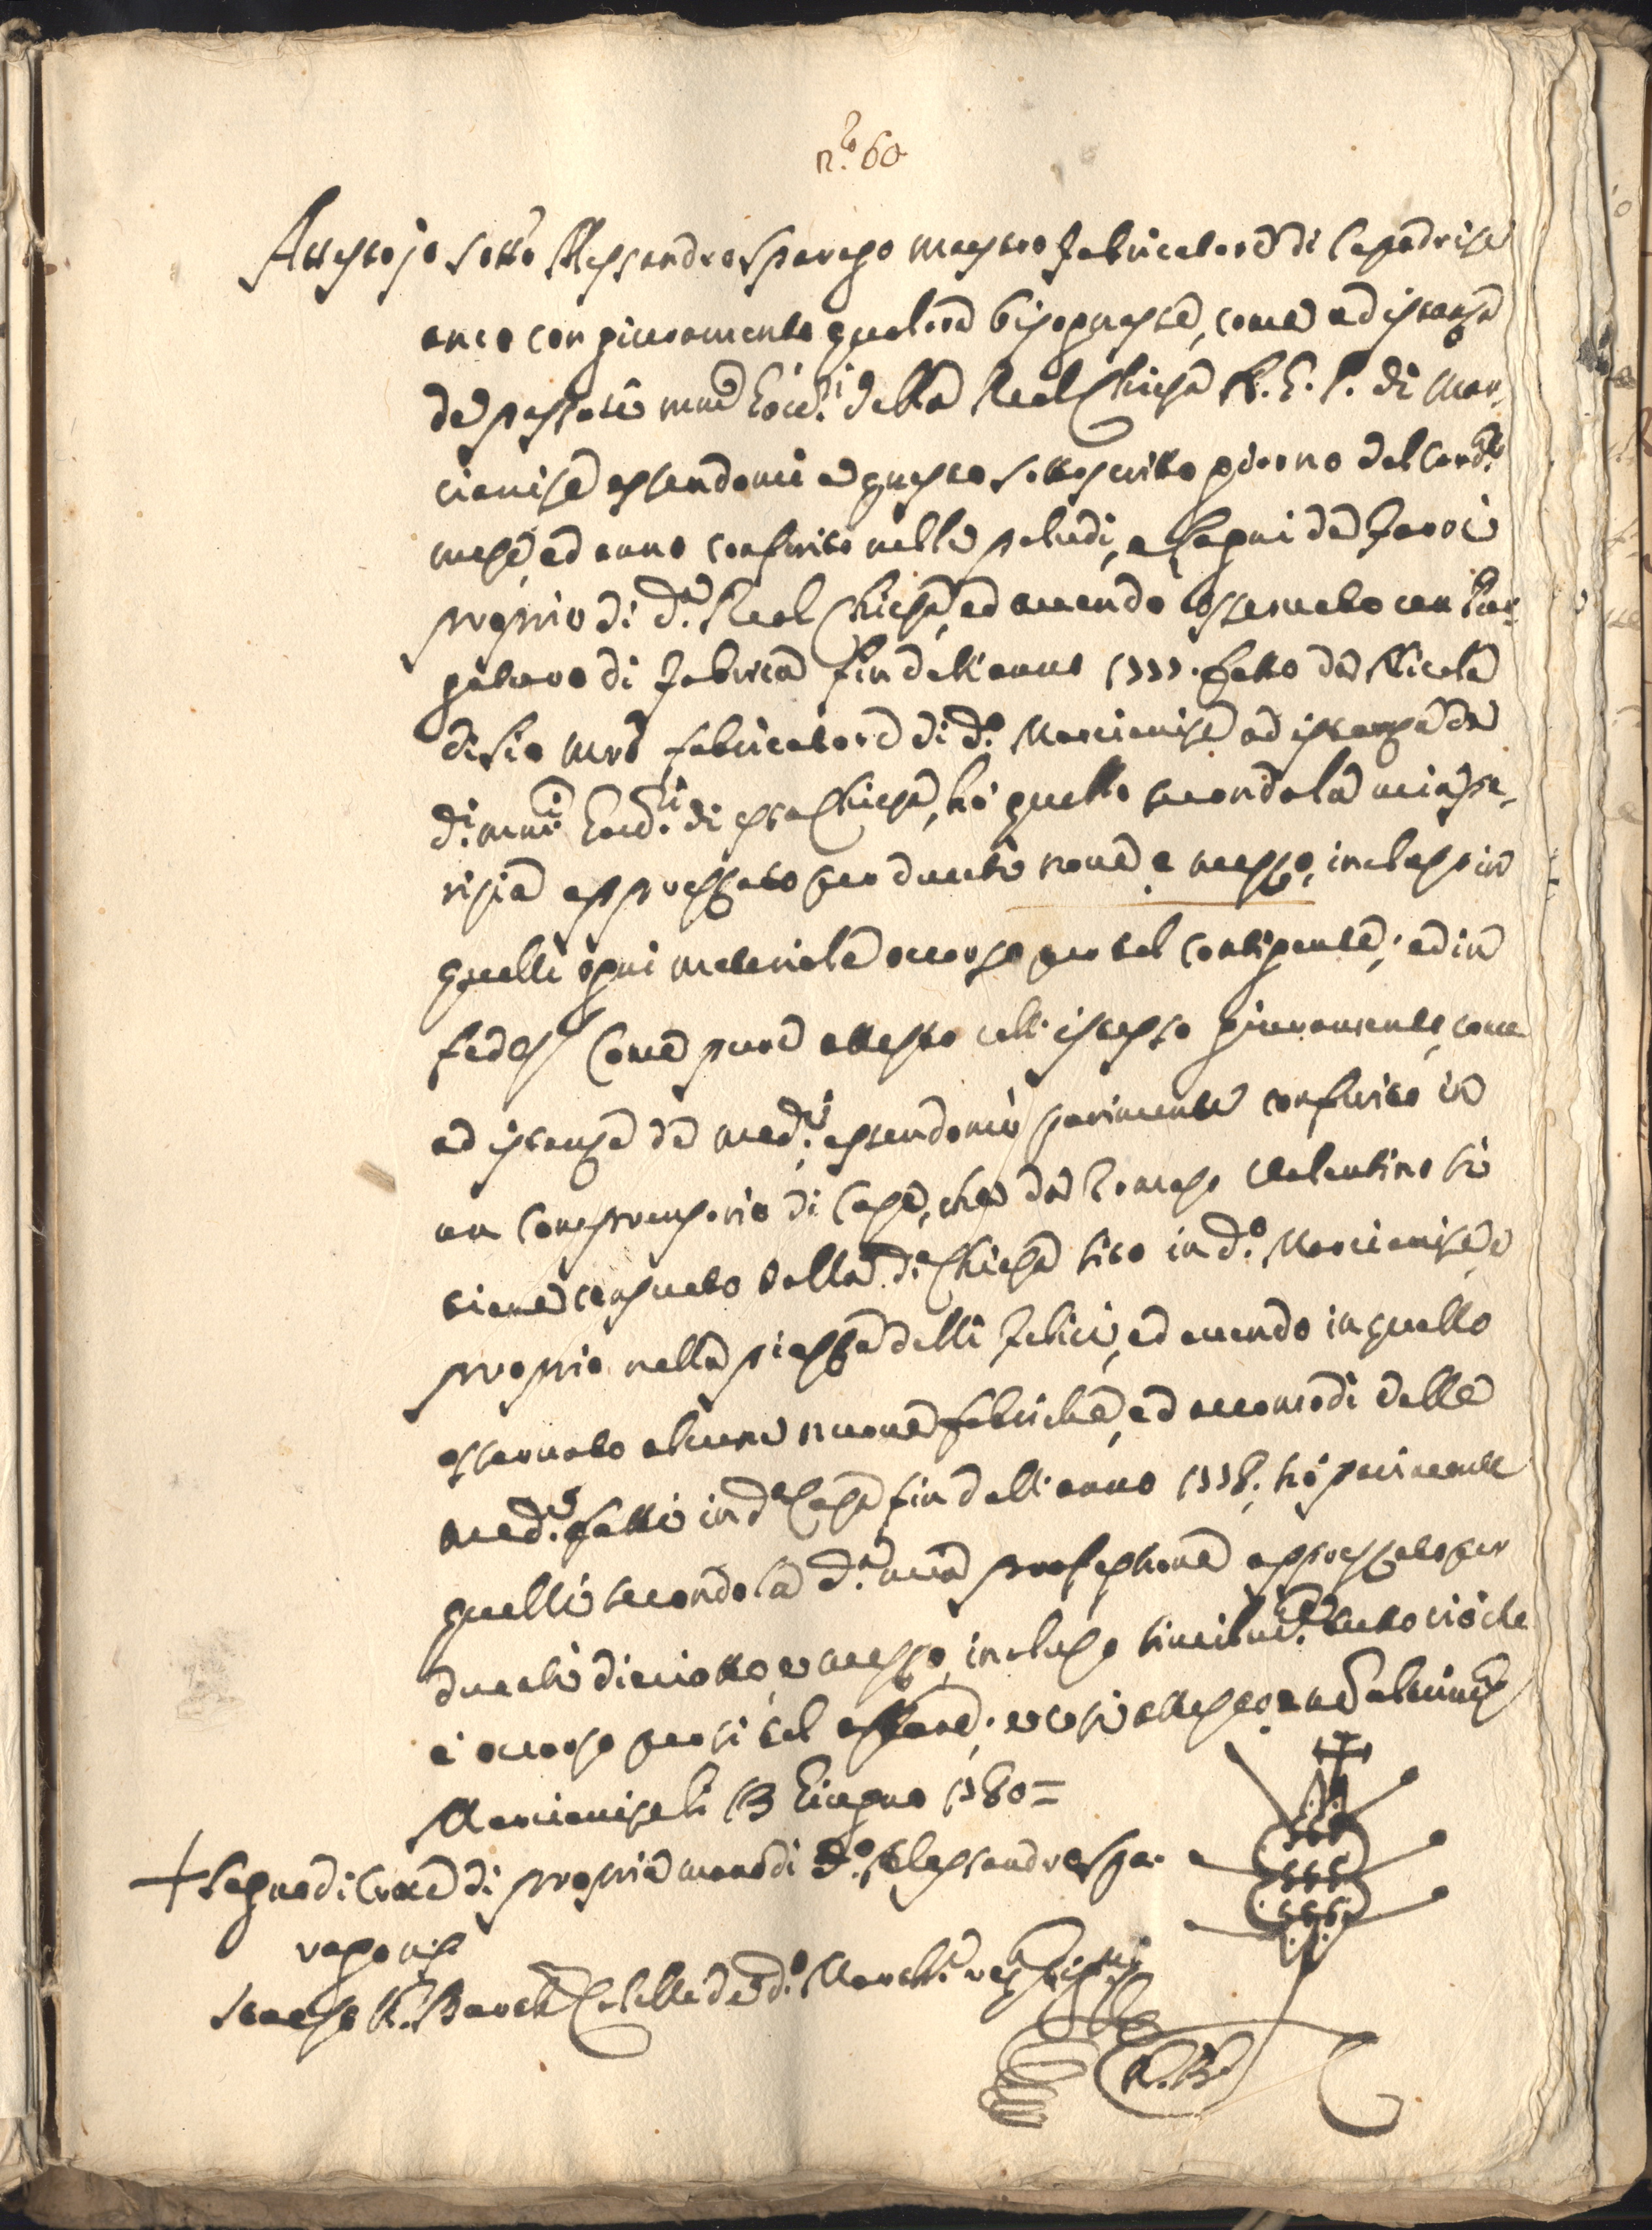 n.ro 60
Attesto jo sotto Alessandro Sparago mastro fabricatore di Capodrise
anco con giuramento qualora bisognasse, come ad istanza
de passati mag.ci Eco.mi della Real Chiesa A. G. P. di Mar-
cianise essendomi a questo sottoscritto giorno del cor.te
mese, ed anno conferito nelle paludi, e
proprio di d.a Real Chiesa, ed avendo osservato un
di fabrica fin dall'anno 1777. fatto da Nicola
di Sio m.ro fabricatore di d.o Marcianise ad istanza da
d.i mag.ci Eco.mi di essa Chiesa, hò quello secondo la mia pe-
rizia apprezzato per ducati nove e mezzo, inclusoci in
quelli ogni materiale occorso per tal contigente; ed in
fede &. Come pure attesto coll'istesso giuramento, come
ad istanza de med.i essendomi parimente conferito in
un comprensorio di Case, che da Tomaso Valentino si
tiene censuato dalla d.a Chiesa sito in d.o Marcianise, e
proprio nella piazza delli Felici, ed avendo in quello
osservato alcune nuove fabriche, ed accomodi dalle
med.i fatti in d.e Case fin dall'anno 1778. hò parimente
quelli secondo la d.a mia professione apprezzato per
ducati dieciotto, e mezzo, incluso similm.te tutto ciò che
è occorso per si tal affare; e così attesto
Marcianise li 13 Giugno 1780=
+ Segno di Croce di propria mano di d.o Alessandro Spa-
rago